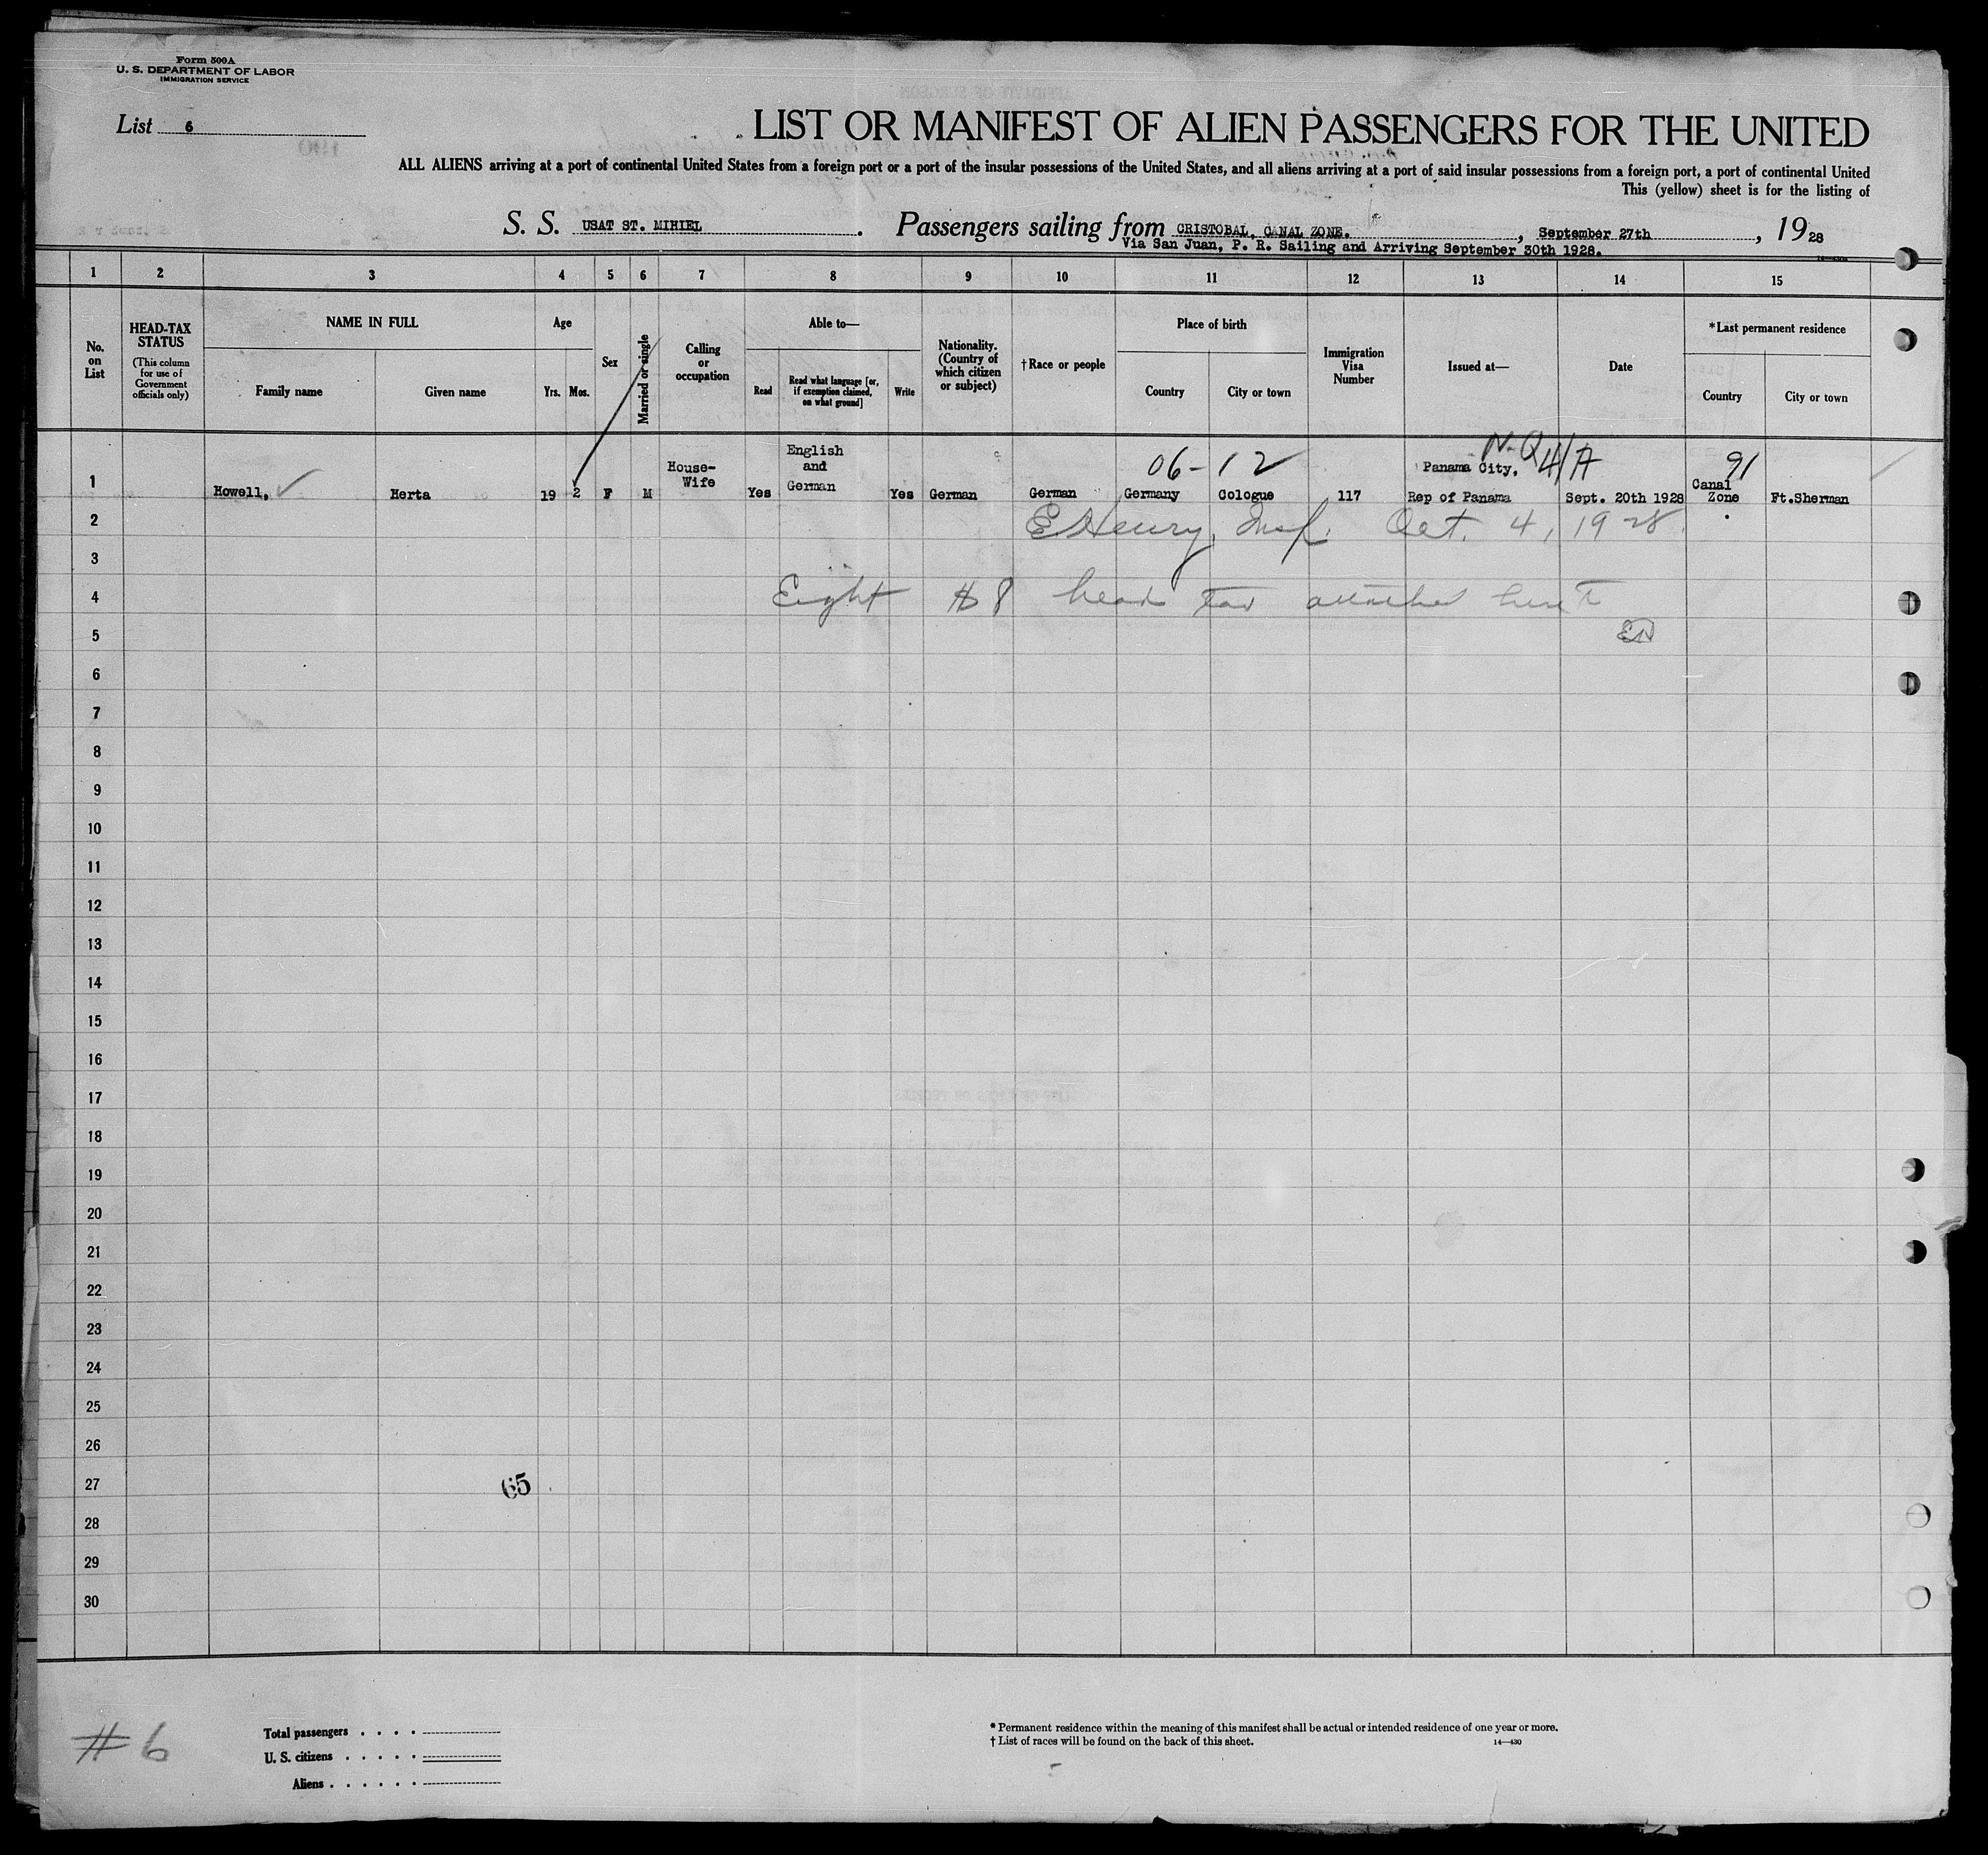 Form 500A
U. S. DEPARTMENT OF LABOR
IMMIGRATION SERVICE
List 6
LIST OR MANIFEST OF ALIEN PASSENGERS FOR THE UNITED
ALL ALIENS arriving at a port of continental United States from a foreign port or a port of the insular possessions of the United States, and all aliens arriving at a port of said insular possessions from a foreign port, a port of continental United
This (yellow) sheet is for the listing of
S. S. USAT ST. MIHIEL. Passengers sailing from CRISTOBAL, CANAL ZONE. , September 27th , 1928
Via San Juan, P. R. Sailing and Arriving September 30th 1928.
1 2 3 4 5 6 7 8 9 10 11 12 13 14 15
No. on List
HEAD-TAX STATUS
(This column for use of Government officials only)
NAME IN FULL
Family name
Given name
Age
Yrs. Mos.
Sex
Married or single
Calling or occupation
Able to—
Read
Read what language [or, if exemption claimed, on what ground]
Write
Nationality. (Country of which citizen or subject)
†Race or people
Place of birth
Country
City or town
Immigration Visa Number
Issued at—
Date
*Last permanent residence
Country
City or town
06-12 N-Q 4/A 91
1 Howell, Herta 19 2 F M House-Wife Yes English and German Yes German German Germany Cologue 117 Panama City, Rep of Panama Sept. 20th 1928 Canal Zone Ft.Sherman
2 E Henry, Insp. Oct. 4, 1928
3
4 Eight $8 head tax attached
5
6
7
8
9
10
11
12
13
14
15
16
17
18
19
20
21
22
23
24
25
26
27 65
28
29
30
#6
Total passengers . . . .
U. S. citizens . . . . .
Aliens . . . . . .
* Permanent residence within the meaning of this manifest shall be actual or intended residence of one year or more.
† List of races will be found on the back of this sheet.
14—430